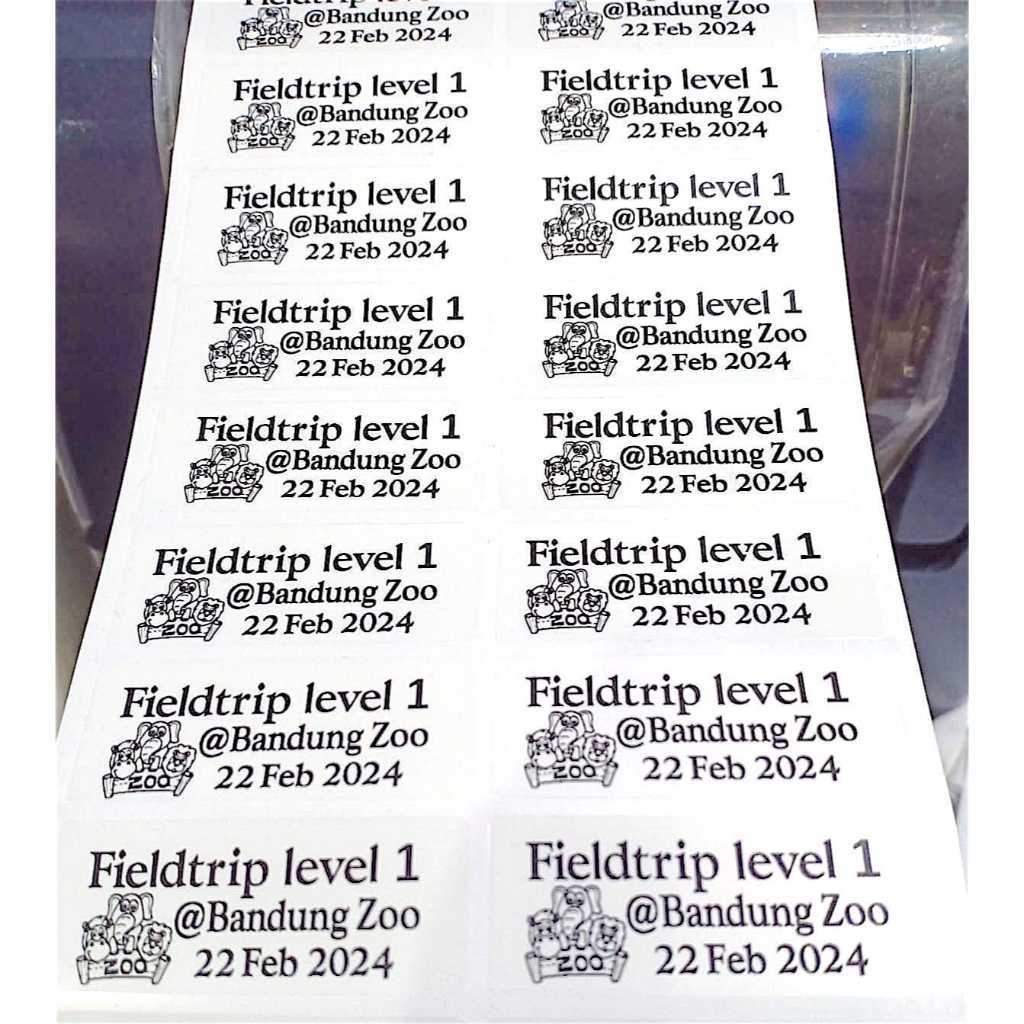 Fieldtrip level 1
@Bandung Zoo
ZOO
22 Feb 2024
Fieldtrip level 1
@Bandung Zoo
ZOO
22 Feb 2024
Fieldtrip level 1
@Bandung Zoo
ZOO
22 Feb 2024
Fieldtrip level 1
@Bandung Zoo
ZOO
22 Feb 2024
Fieldtrip level 1
@Bandung Zoo
ZOO
22 Feb 2024
Fieldtrip level 1
@Bandung Zoo
ZOO
22 Feb 2024
Fieldtrip level 1
@Bandung Zoo
ZOO
22 Feb 2024
Fieldtrip level 1
@Bandung Zoo
ZOO
22 Feb 2024
@Bandung Zoo
ZOO
22 Feb 2024
Fieldtrip level 1
@Bandung Zoo
ZOO
22 Feb 2024
Fieldtrip level 1
@Bandung Zoo
ZOO
22 Feb 2024
Fieldtrip level 1
@Bandung Zoo
ZOO
22 Feb 2024
Fieldtrip level 1
@Bandung Zoo
ZOO
22 Feb 2024
Fieldtrip level 1
@Bandung Zoo
ZOO
22 Feb 2024
Fieldtrip level 1
@Bandung Zoo
ZOO
22 Feb 2024
Fieldtrip level 1
@Bandung Zoo
ZOO
22 Feb 2024